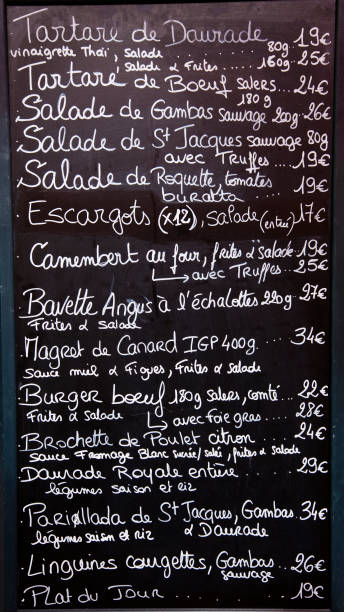 Tartare de Daurade 19€
vinaigrette Thaï, salade ...... 80g
salade & Frites ...... 160g. 25€
Tartare de Boeuf salers... 24€
180g
Salade de Gambas sauvage 200g. 26€
Salade de St Jacques sauvage 80g
avec Truffes .... 19€
Salade de Roquette, tomates
buratta 19€
. Escargots (x12), salade (entrée) 17€
. Camembert au four, frites & salade. 19€
avec Truffes... 25€
Bavette Angus à l'échalottes 220g. 27€
Frites & Salade
. Magret de Canard IGP 400g. ... 34€
Sauce miel & Figues, Frites & Salade
. Burger boeuf 180g salers, comté... 22€
Frites & Salade
avec Foie gras .... 28€
. Brochette de Poulet citron .... 24€
sauce Fromage Blanc sucré/salé, frites & salade
. Daurade Royale entière ....... 29€
légumes saison et riz
. Parillada de St Jacques, Gambas. 34€
légumes saison et riz & Daurade
. Linguines courgettes, Gambas ... 26€
sauvage
. Plat du Jour ........ 19€